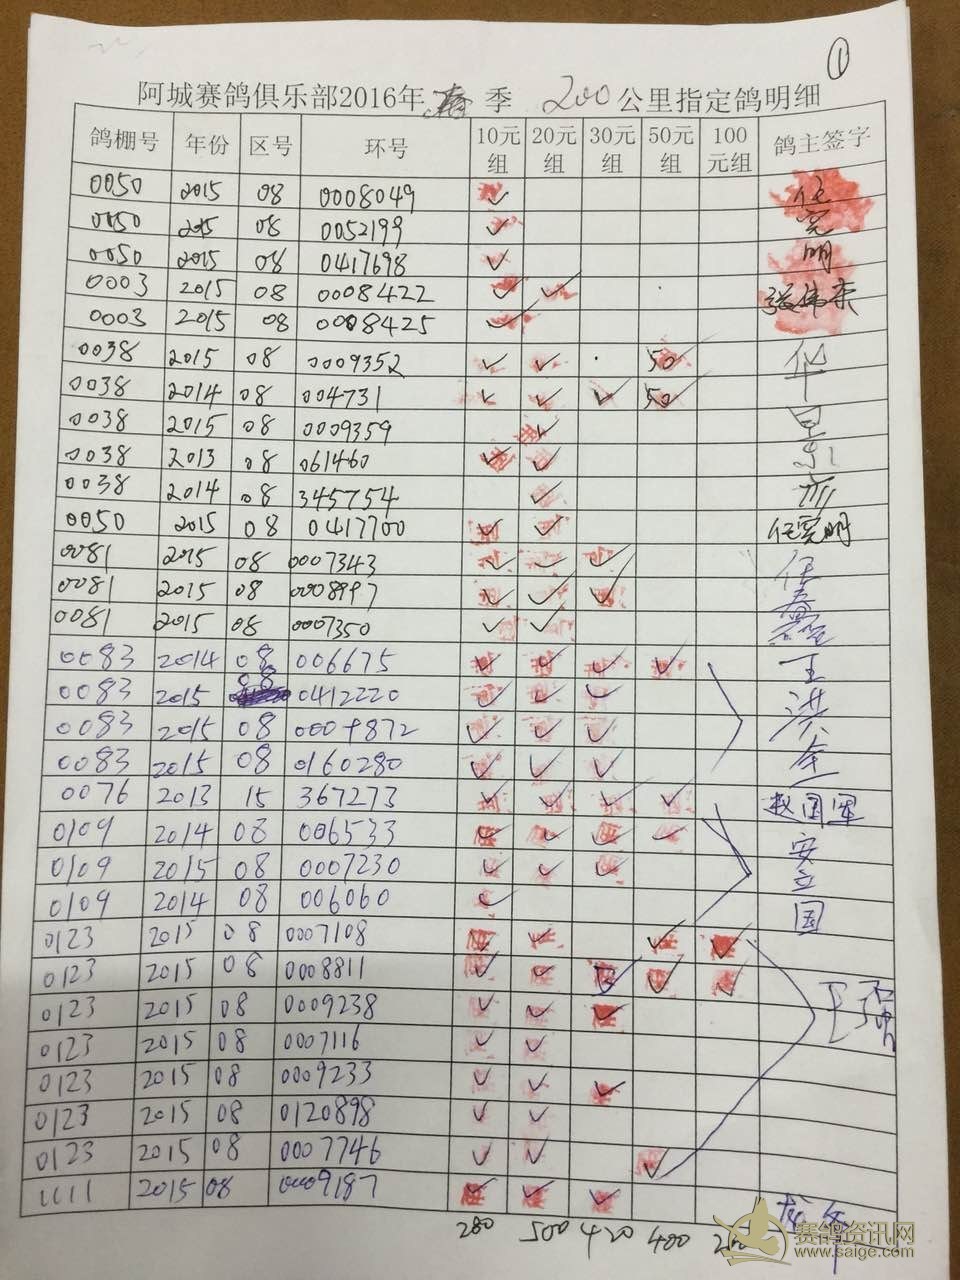 ①
阿城赛鸽俱乐部2016年春季 200公里指定鸽明细
鸽棚号 年份 区号 环号 10元组 20元组 30元组 50元组 100元组 鸽主签字
0050 2015 08 0008049 ✓ 任
0050 2015 08 0052199 ✓ 宪
0050 2015 08 0417698 ✓ 明
0003 2015 08 0008422 ✓ ✓ 张伟
0003 2015 08 0008425 ✓
0038 2015 08 0009352 ✓ ✓ 50
0038 2014 08 004731 ✓ ✓ ✓ 50
0038 2015 08 0009359 ✓
0038 2013 08 061460 ✓ ✓
0038 2014 08 345754 ✓
0050 2015 08 0417700 ✓ ✓ 任宪明
0081 2015 08 0007343 ✓ ✓ ✓ 任
0081 2015 08 0008997 ✓ ✓ ✓
0081 2015 08 0007350 ✓ ✓
0083 2014 08 006675 ✓ ✓ ✓ ✓ 王
0083 2015 08 0412220 ✓ ✓ ✓ 洪
0083 2015 08 0009872 ✓ ✓ ✓
0083 2015 08 0160280 ✓ ✓ ✓ 全
0076 2013 15 367273 ✓ ✓ ✓ ✓ 赵国军
0109 2014 08 006533 ✓ ✓ ✓ ✓ 安
0109 2015 08 0007230 ✓ ✓ ✓ 立
0109 2014 08 006060 ✓ 国
0123 2015 08 0007108 ✓ ✓ ✓ ✓
0123 2015 08 0008811 ✓ ✓ ✓ ✓ ✓ 王强
0123 2015 08 0009238 ✓ ✓ ✓
0123 2015 08 0007116 ✓ ✓
0123 2015 08 0009233 ✓ ✓ ✓
0123 2015 08 0120898 ✓ ✓
0123 2015 08 0007746 ✓ ✓ ✓
1111 2015 08 0009187 ✓ ✓ ✓
280 500 420 400
赛鸽资讯网
www.saige.com